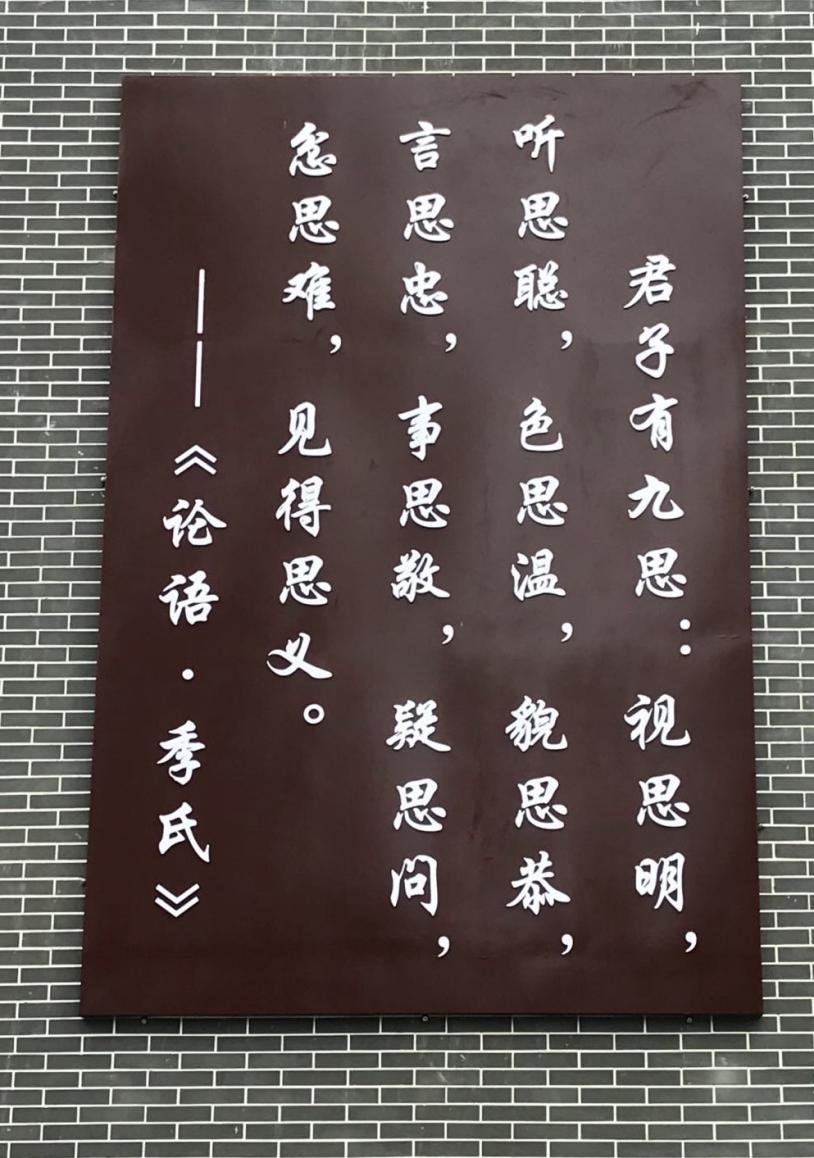 君子有九思：视思明，
听思聪，色思温，貌思恭，
言思忠，事思敬，疑思问，
忿思难，见得思义。
——《论语·季氏》